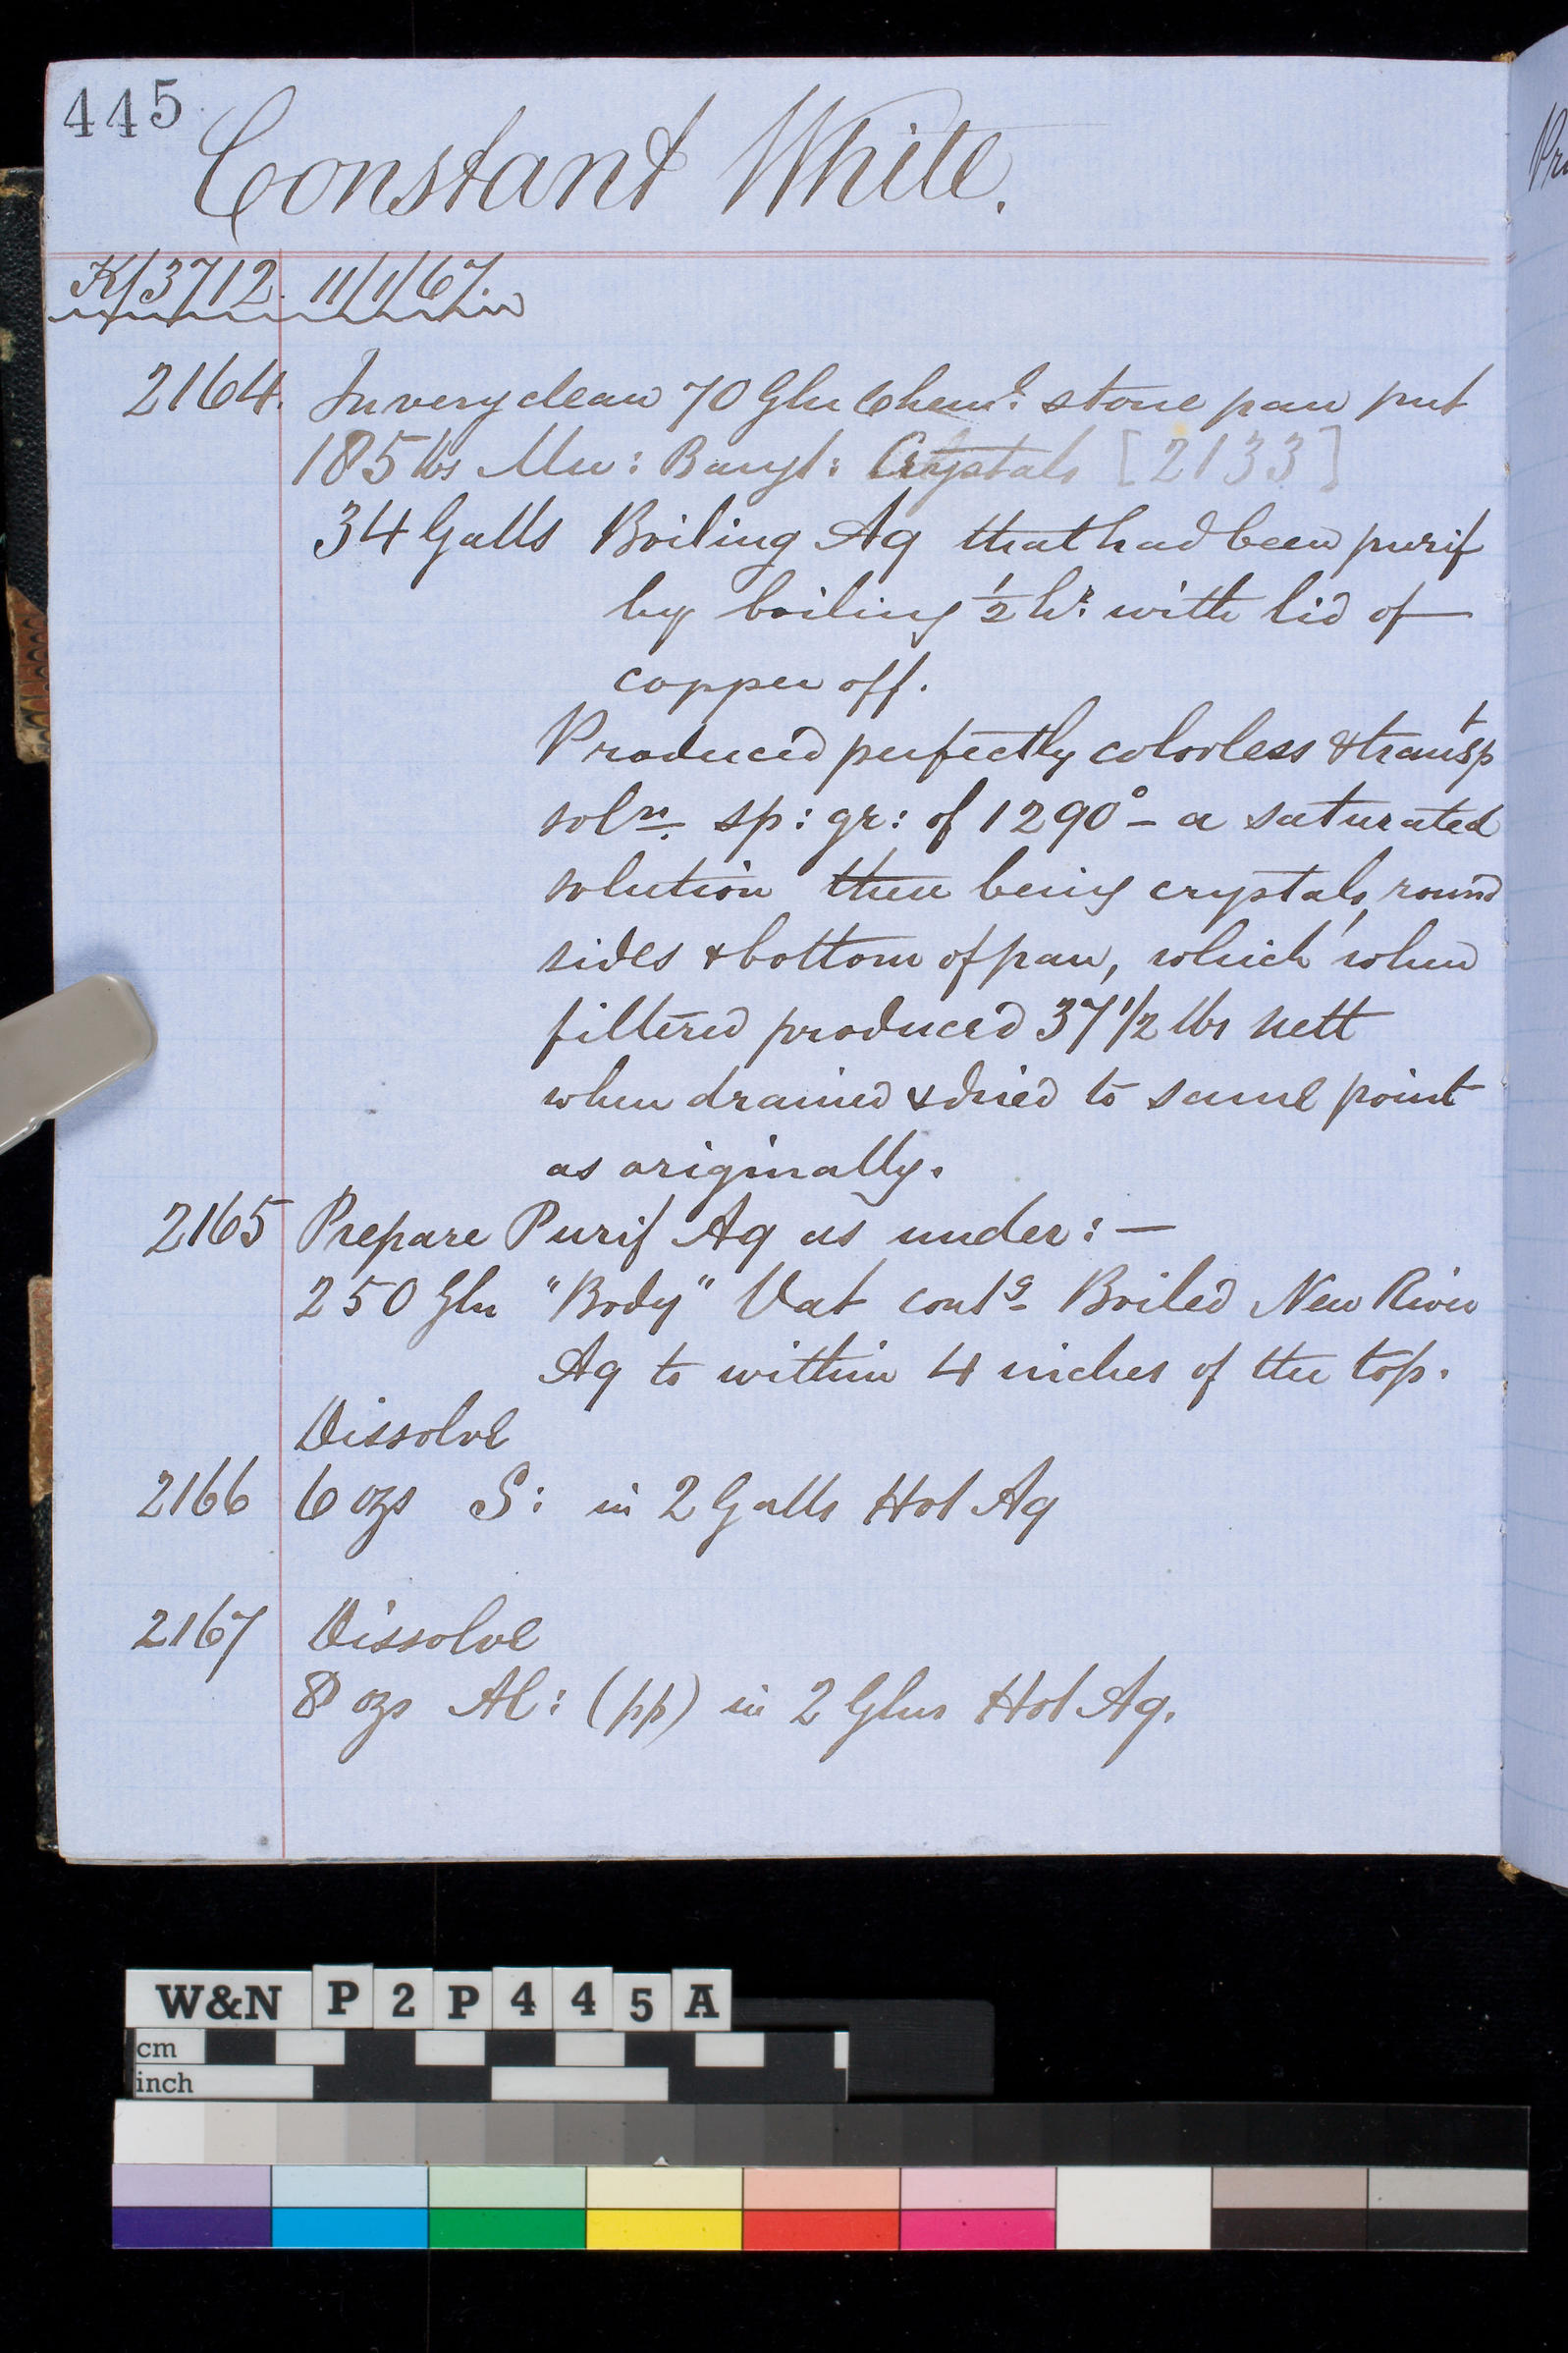 445
Constant White.
K/3712. 11/1/67.
2164. In very clean 70 Gln Cheml: stone pan put
185 lbs Mu: Baryt: Crystals [2133]
34 Galls Boiling Aq that had been purif
by boiling ½ hr: with lid of
copper off.
Produced perfectly colorless & transpt
soln. sp: gr: of 1290° – a saturated
solution there being crystals, round
sides & bottom of pan, which when
filtered produced 37 1/2 lbs nett
when drained & dried to same point
as originally.
2165 Prepare Purif Aq as under: —
250 Gln "Body" Vat contg Boiled New River
Aq to within 4 inches of the top.
Dissolve
2166 6 ozs S: in 2 Galls Hot Aq
2167 Dissolve
8 ozs Al: (pp) in 2 Glns Hot Aq.
W&N P2P445A
cm
inch